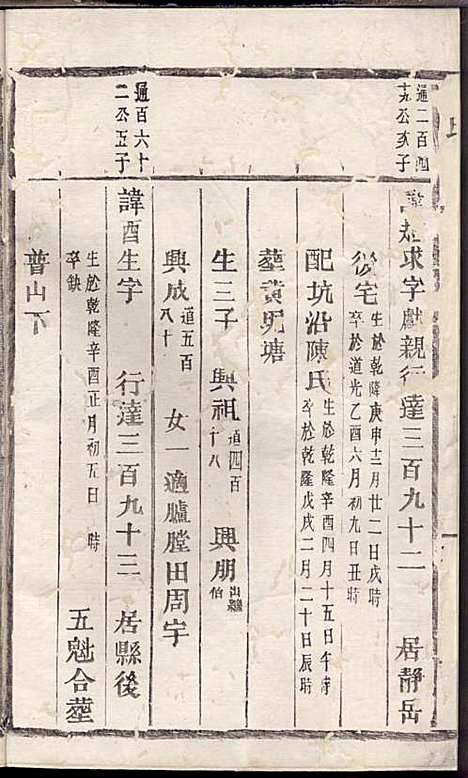 通二百四
十九公亥子
求字獻親行達三百九十二 居靜岳
從宅 生於乾隆庚申十二月廿二日戌時
卒於道光乙酉六月初九日丑時
配坑沿陳氏 生於乾隆辛酉四月十五日午時
卒於乾隆戊戌二月二十日辰時
塟黄坭塘
生三子 興祖 道四百
十八 興朋 出繼
伯
興成 道五百
八十 女一適臚膛田周宇
通百六十
二公五子
諱酉生字 行達三百九十三 居縣後
生於乾隆辛酉正月初五日 時
卒缺 五魁合塟
普山下